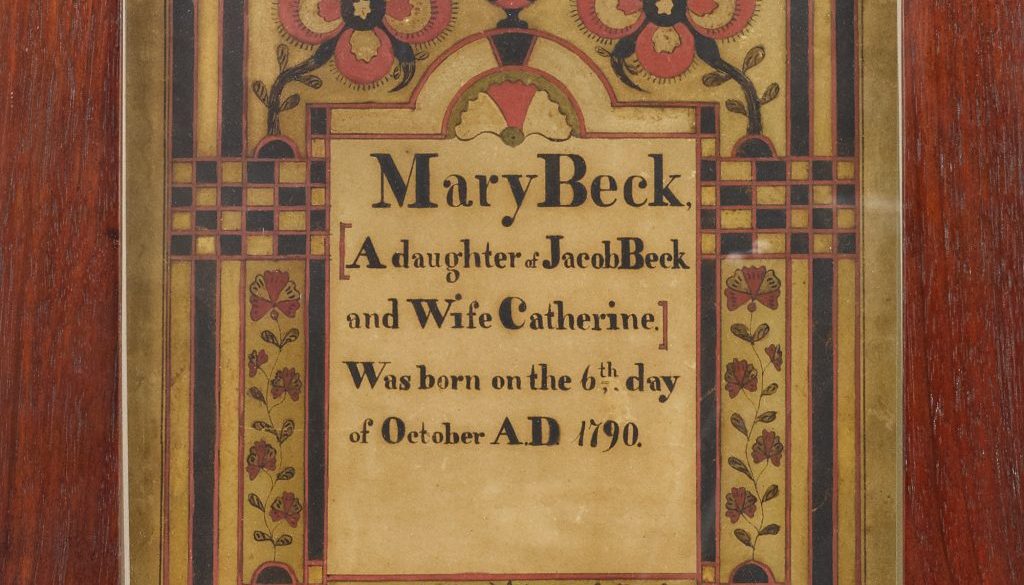 Mary Beck,
[A daughter of Jacob Beck
and Wife Catherine.]
Was born on the 6th. day
of October A.D 1790.